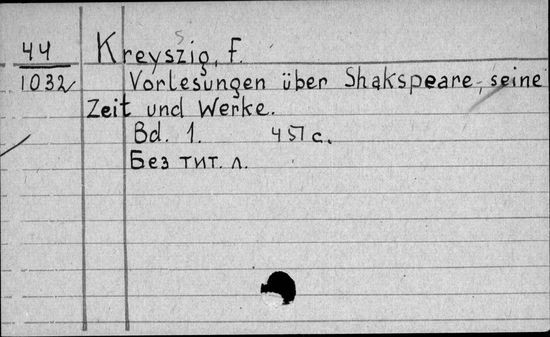 44
1032
Kreyszig, F.
Vorlesungen über Shakspeare, seine
Zeit und Werke.
Bd. 1. 451 с.
Без тит. л.